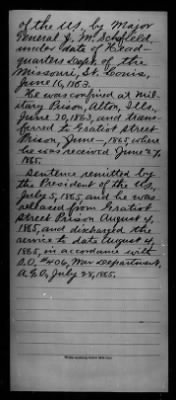 of the U.S. by Major
General J. M. Schofield,
under date of Head-
quarters Dept. of the
Missouri, St. Louis,
June 16, 1863.
He was confined at Mil-
itary Prison, Alton, Ills.
June 20, 1863, and trans-
ferred to Gratiot Street
Prison, June —, 1865, where
he was received June 27,
1865.
Sentence remitted by
the President of the U.S,
July 5, 1865, and he was
released from Gratiot
Street Prison August 4,
1865, and discharged the
service to date August 4,
1865, in accordance with
S.O. #406, War Department,
A.G.O, July 28, 1865.